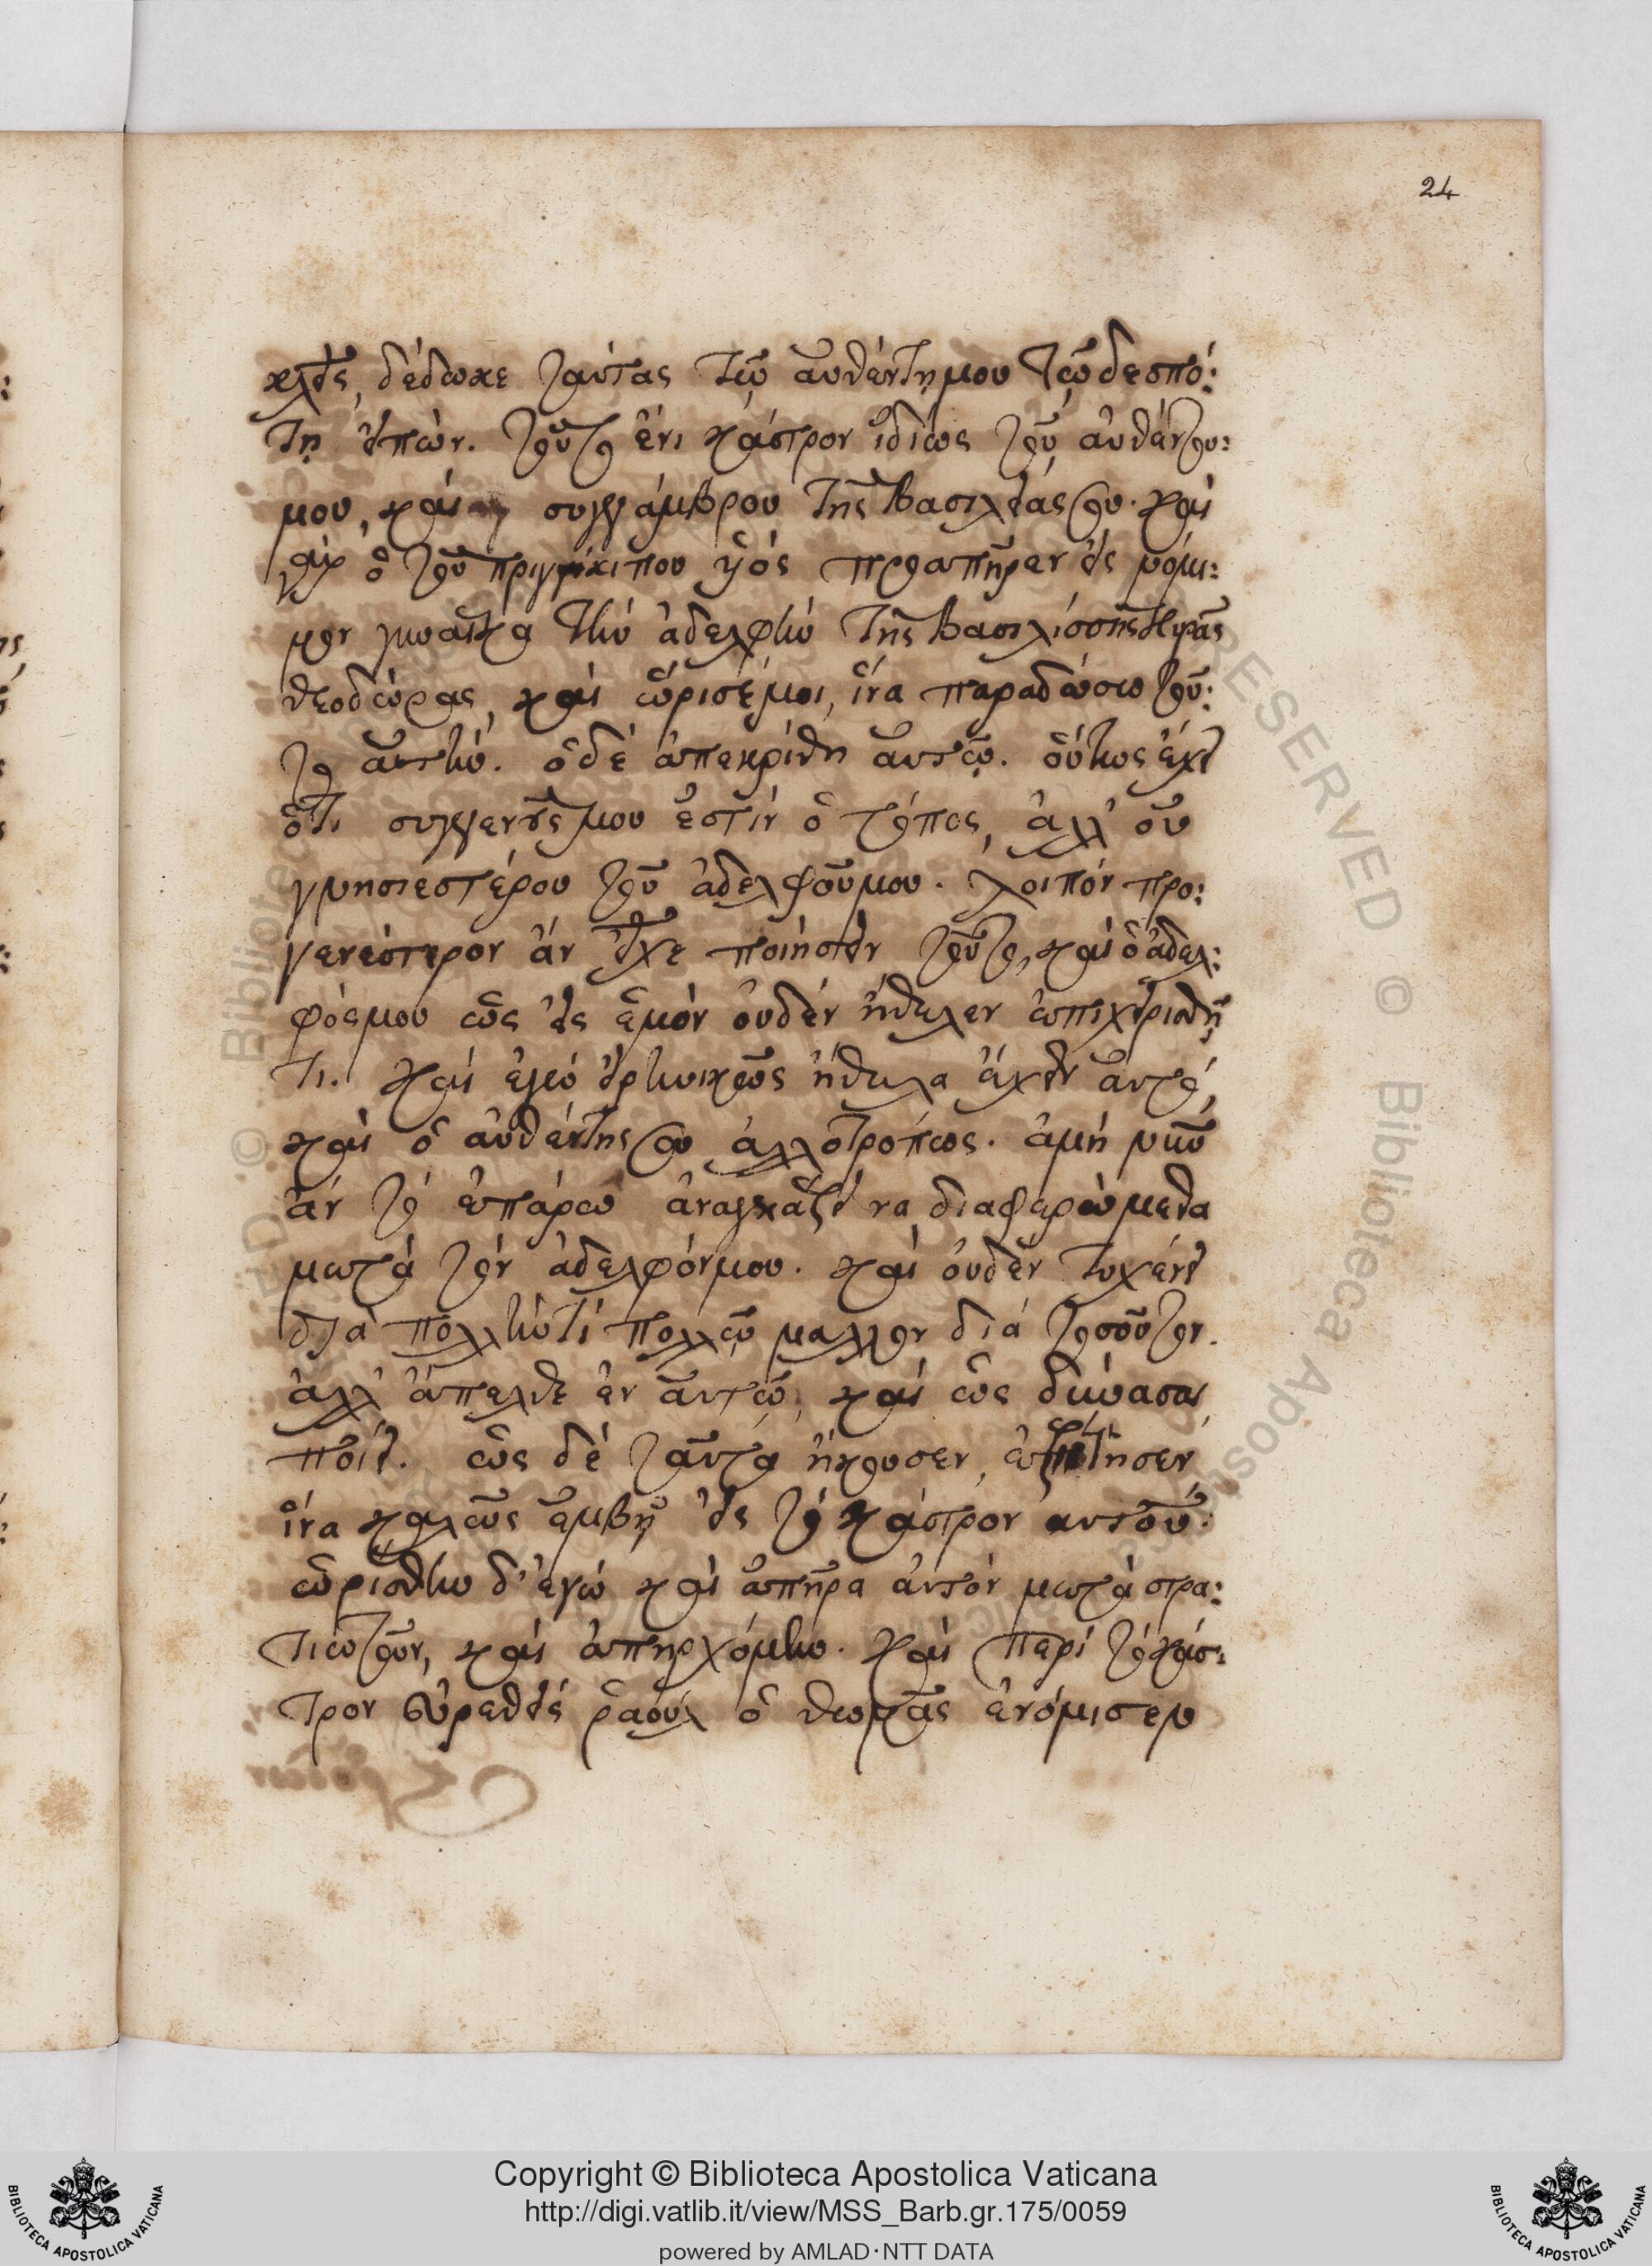 24
κλεῖς, δέδωκε ταύτας τῶ αὐθέντη μου τῶ δεσπό:
τη εἰπών. τοῦτο ἔνι κάστρον ἰδίως τοῦ αὐθέντου:
μου, καὶ συγγάμβρου τῆς βασιλείας σου. καὶ
γὰρ ὁ τοῦ πριγκίπου υἱὸς προαπῆρεν εἰς νόμι:
μον γυναῖκα τὴν ἀδελφὴν τῆς βασιλίσσης κυρᾶς
θεοδώρας, καὶ ὥρισέ μοι, ἵνα παραδώσω τοῦ:
το αὐτήν. ὁ δὲ ἀπεκρίθη αὐτῶ. οὕτως ἔχει
ὅτι συγγενεῖς μου ἐστὶν ὁ τόπος, ἀλλ' οὐ
γνησιεστέρου τοῦ ἀδελφοῦ μου. λοιπόν προ:
γενέστερον ἂν εἶχε ποιήσειν τοῦτο, καὶ ὁ ἀδελ:
φός μου ὡς εἰς ἐμὸν οὐδὲν ἤθελεν ἐπιχειρισθῆ
τι. καὶ ἐγὼ εἰρηνικῶς ἤθελα ἔχειν αὐτό,
καὶ ὁ αὐθέντης σου ἀλλοτρόπως. ἀμὴ νῦν
ἂν τὸ ἐπάρω ἀναγκάζει να διαφερώμεθα
μετὰ τὸν ἀδελφόν μου. καὶ οὐδὲν τυχένει
διὰ πολλήν τι πολλῶ μαλλον διὰ τοσοῦτον.
ἀλλ' ἄπελθε ἐν αὐτῶ, καὶ ὡς δύνασαι
ποίει. ὡς δὲ ταῦτα ἤκουσεν, ἐζήτησεν
ἵνα καλῶς ἐμβῆ εἰς τὸ κάστρον αὐτοῦ.
ὡρίσθην δ' ἐγώ καὶ ἀπῆρα αὐτὸν μετὰ στρα:
τιωτῶν, καὶ ἀπηρχόμην. καὶ περὶ τὸ κάσ:
τρον εὑρεθεὶς ῥαοὺλ ὁ θωμᾶς ἐνόμισεν
Copyright © Biblioteca Apostolica Vaticana
http://digi.vatlib.it/view/MSS_Barb.gr.175/0059
powered by AMLAD·NTT DATA
BIBLIOTECA APOSTOLICA VATICANA
BIBLIOTECA APOSTOLICA VATICANA